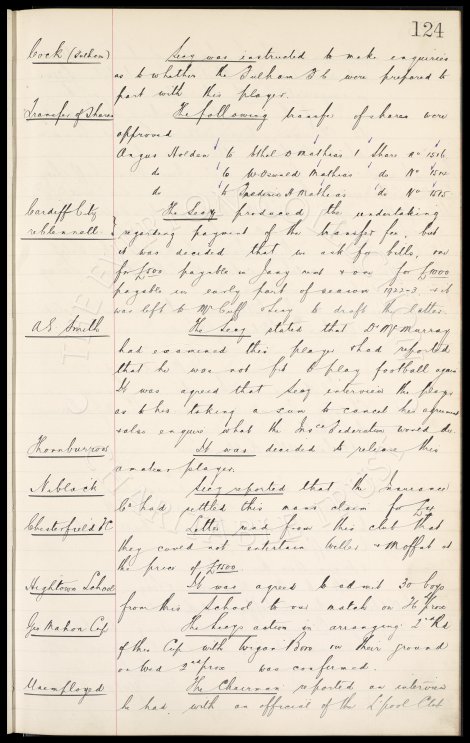 124
Cock (Fulham) Secy was instructed to make enquiries
as to whether the Fulham F C were prepared to
part with this player.
Transfer of Shares The following transfer of shares were
approved
Angus Holden to Ethel D Mathias 1 Share No 1516
do to W Oswald Mathias do No
do to Frederic H Mathias do No 1515
Cardiff City The Secy produced the undertaking
re Clennell regarding payment of the transfer fee, but
it was decided that we ask for bills, one
for £500 payable in Jany next & one for £1000
payable in early part of season 1922-3 & it
was left to Mr Cuff & Secy to draft the latter.
A.E. Smith The Secy stated that Dr McMurray
had examined this player & had reported
that he was not fit to play football again
It was agreed that Secy interview the player
as to his taking a sum to cancel his agreement
& also enquire what the Insce Federation would do.
Thornburrows It was decided to release this
amateur player.
Niblack Secy reported that the insurance
Co had settled this mans claim for
Chesterfield FC Letter read from this club that
they could not entertain Weller & Moffat at
the price of £1500.
Hightown School It was agreed to admit 30 boys
from this School to our match on 26 prox
Geo Mahon Cup The Secys action in arranging 2nd Rd
of this Cup with Wigan Boro on their ground
on Wed 2nd prox was confirmed.
Unemployed The Chairman reported an interview
he had with an official of the L'pool Club